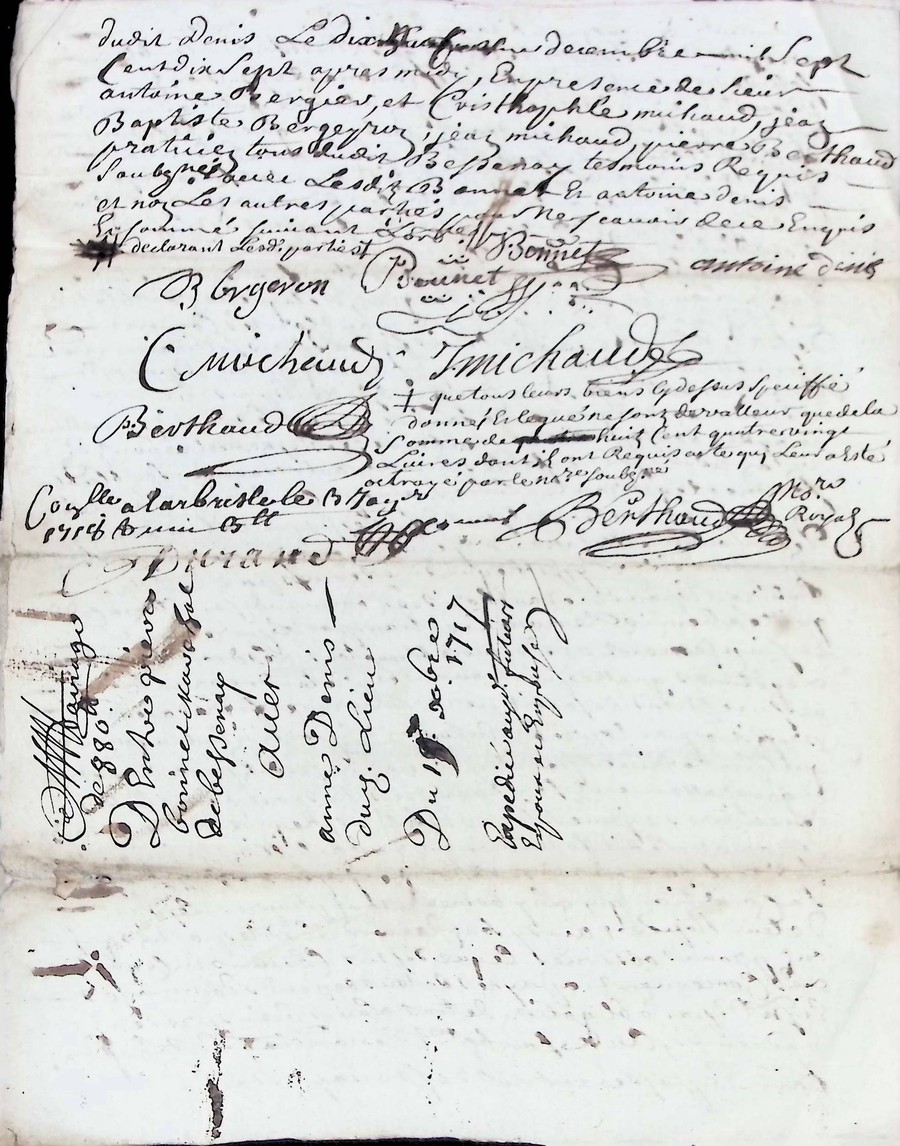 dudit denis Le dix decembre mil Sept
Cent dix Sept apres midy, En presence de sieur
antoine Bergier, et Cristhophle michaud, jean
Baptiste Bergeyron, jean michaud, pierre Berthaud
praticien tous dudit Bessenay temoins Requis
Soubz.nés avec Lesdit Bonnet Et antoine denis
et non Les autres parties pour ne scavoir de ce Enquis
Et sommé suivant L'ord
declarant Lesd. parties
Bonnet
antoine denis
Bergeron
Bonnet
C Michaud
J michaud
Berthaud
+ que tous leurs biens cy dessus speciffié
donné Et legué ne sont de valleur que de la
Somme de huit Cent quatre vingt
Livres dont ils ont Requis acte qui Leur a Esté
octroyé par le no.re soubzné
Con.lle a Larbresle le 3
Durand
Berthaud
No.re
Royal
Mariage
de 880 lt
D'Entre pierre
bonnet
de bessenay
Avec
anne Denis
dud. Lieu
Du 19 Xbre
1717
Expedié aud. futur
Epoux